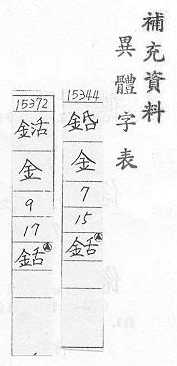 補充資料
異體字表
15344
金
7
15
銛
15372
金
9
17
銛